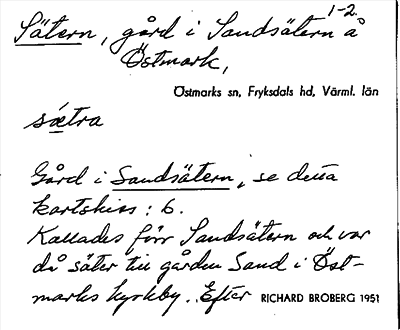 1-2.
Sätern, gård i Sandsätern å
Östmark,
Östmarks sn, Fryksdals hd, Värml. län
sǽtra
Gård i Sandsätern, se detta
kartskiss: 6.
Kallades förr Sandsätern och var
då säter till gården Sand i Öst-
marks kyrkby. Efter RICHARD BROBERG 1951